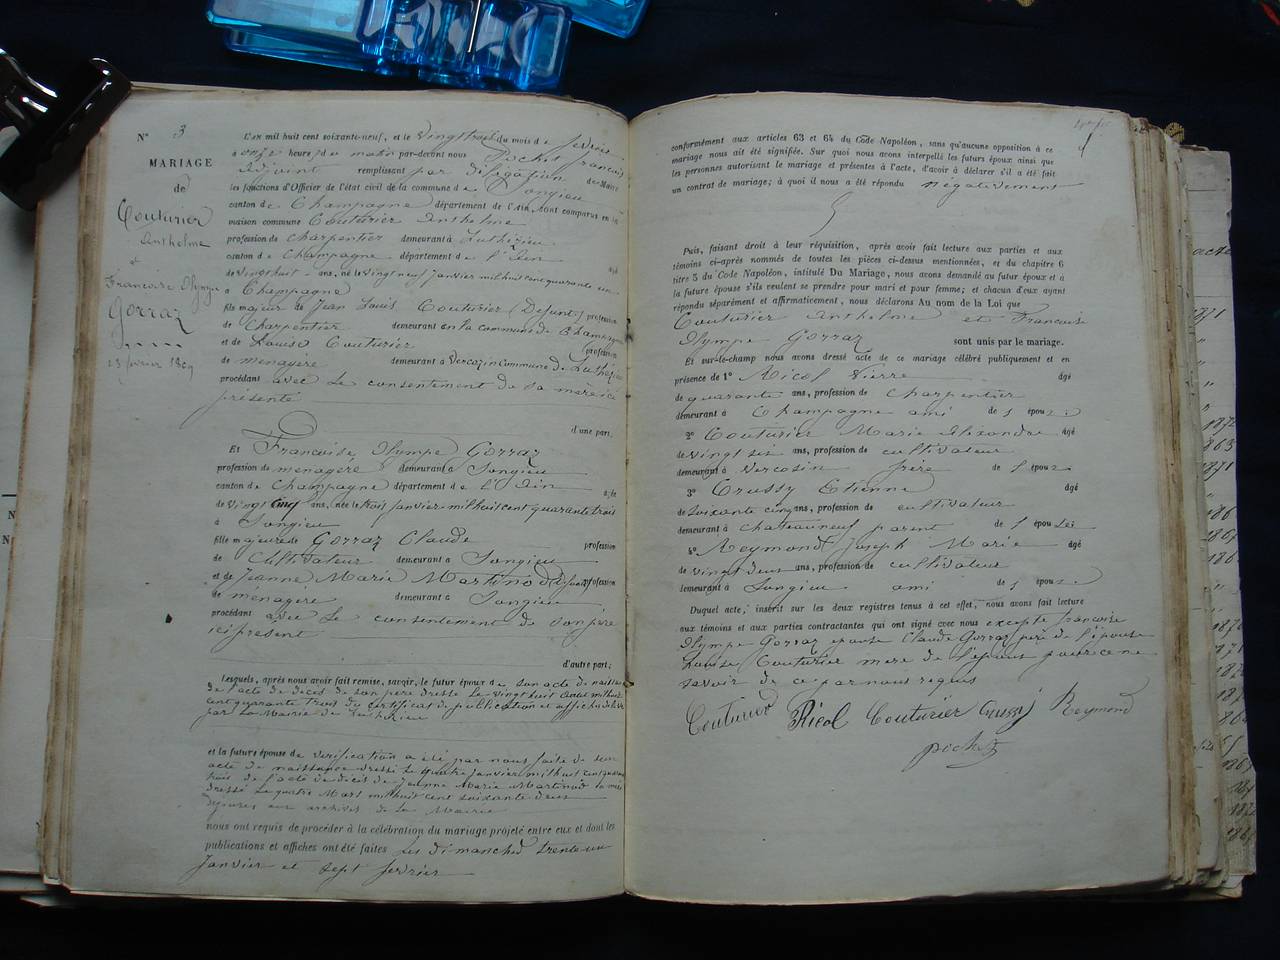 N° 3
MARIAGE
de
Couturier
Anthelme
et
Francoise Olympe
Gorraz
23 fevrier 1869
L'an mil huit cent soixante-neuf, et le vingt trois du mois de fevrier
a onze heures du matin par-devant nous Pochet francois
adjoint remplissant par délégation du Maire
les fonctions d'Officier de l'état civil de la commune de Songieu
canton de Champagne département de l'Ain, sont comparus en la
maison commune Couturier Anthelme
profession de charpentier demeurant à Luthezieu
canton de Champagne département de l'Ain âgé
de vingt huit ans, né le vingt neuf janvier mil huit cent quarante un
à Champagne
fils majeur de Jean Louis Couturier (Defunt) profession
de Charpentier demeurant en la commune de Champagne
et de Louise Couturier profession
de menagère demeurant à Vercozin commune de Luthezieu
procédant avec le consentement de sa mère ici
présente
d'une part.
Et Francoise Olympe Gorraz
profession de menagere demeurant à Songieu
canton de Champagne département de l'Ain âgée
de vingt cinq ans, née le trois janvier mil huit cent quarante trois
à Songieu
fille majeure de Gorraz Claude profession
de Cultivateur demeurant à Songieu
et de Jeanne Marie Martinod (Defunte) profession
de menagère demeurant à Songieu
procédant avec le consentement de son père
ici présent
d'autre part;
Lesquels, après nous avoir fait remise, savoir, le futur époux de son acte de naissance
de l'acte de décès de son père dressé le vingt huit aout mil huit
cent quarante trois du certificat de publication et affiches délivré
par la Mairie de Luthezieu
et la future épouse de verification a été par nous faite de son
acte de naissance dressé le quatre janvier mil huit cent quarante
trois de l'acte de décès de Jeanne Marie Martinod sa mère
dressé le quatre Mars mil huit cent soixante deux
déposés aux archives de la Mairie
nous ont requis de procéder à la célébration du mariage projeté entre eux et dont les
publications et affiches ont été faites les dimanches trente un
janvier et sept fevrier
conformément aux articles 63 et 64 du Code Napoléon, sans qu'aucune opposition à ce
mariage nous ait été signifiée. Sur quoi nous avons interpellé les futurs époux ainsi que
les personnes autorisant le mariage et présentes à l'acte, d'avoir à déclarer s'il a été fait
un contrat de mariage; à quoi il nous a été répondu négativement
Puis, faisant droit à leur réquisition, après avoir fait lecture aux parties et aux
témoins ci-après nommés de toutes les pièces ci-dessus mentionnées, et du chapitre 6
titre 5 du Code Napoléon, intitulé Du Mariage, nous avons demandé au futur époux et à
la future épouse s'ils veulent se prendre pour mari et pour femme; et chacun d'eux ayant
répondu séparément et affirmativement, nous déclarons Au nom de la Loi que
Couturier Anthelme et Francoise
Olympe Gorraz sont unis par le mariage.
Et sur-le-champ nous avons dressé acte de ce mariage célébré publiquement et en
présence de 1° Ricol Pierre âgé
de quarante ans, profession de Charpentier
demeurant à Champagne ami de l'époux
2° Couturier Marie Alixandre âgé
de vingt six ans, profession de cultivateur
demeurant à Vercosin frère de l'époux
3° Crussy Etienne âgé
de soixante cinq ans, profession de cultivateur
demeurant à Chateauneuf parent de l'épou
4° Reymond Joseph Marie âgé
de vingt deux ans, profession de cultivateur
demeurant à Songieu ami de l'époux
Duquel acte, insérit sur les deux registres tenus à cet effet, nous avons fait lecture
aux témoins et aux parties contractantes qui ont signé avec nous excepté francoise
Olympe Gorraz epouse Claude Gorraz père de l'épouse
Louise Couturier mere de l'époux pour ne
savoir de ce par nous requis
Couturier Ricol Couturier Crussy Reymond
pochet